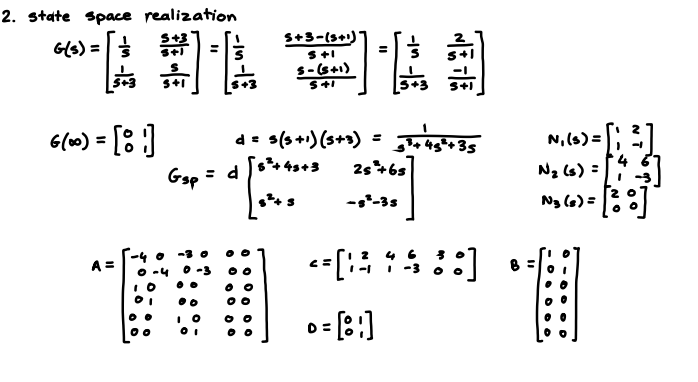 2. state space realization
G(s) = [1/s (s+3)/(s+1); 1/(s+3) s/(s+1)] = [1/s (s+3-(s+1))/(s+1); 1/(s+3) (s-(s+1))/(s+1)] = [1/s 2/(s+1); 1/(s+3) -1/(s+1)]
G(∞) = [0 1; 0 1] d = s(s+1)(s+3) = 1/(s³+4s²+3s) N₁(s) = [1 2; 1 -1]
G_sp = d [s²+4s+3 2s²+6s; s²+s -s²-3s] N₂(s) = [4 6; 1 -3]
N₃(s) = [2 0; 0 0]
A = [-4 0 -3 0 0 0; 0 -4 0 -3 0 0; 1 0 0 0 0 0; 0 1 0 0 0 0; 0 0 1 0 0 0; 0 0 0 1 0 0] C = [1 2 4 6 3 0; 1 -1 1 -3 0 0] B = [1 0; 0 1; 0 0; 0 0; 0 0; 0 0]
D = [0 1; 0 1]